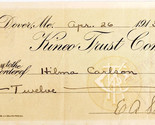 Dover, Me. Apr. 26 191
Kineo Trust Com
to the
order of Hilma Carlson
Twelve